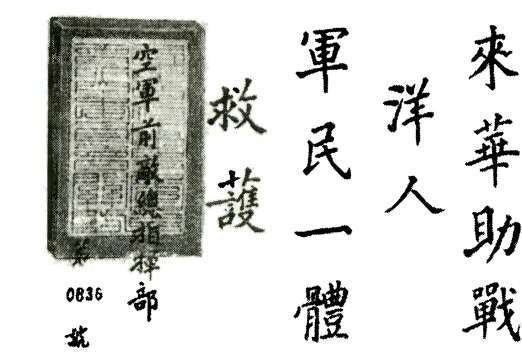 來華助戰
洋人
軍民一體
救護
空軍前敵總指揮部
第0836號